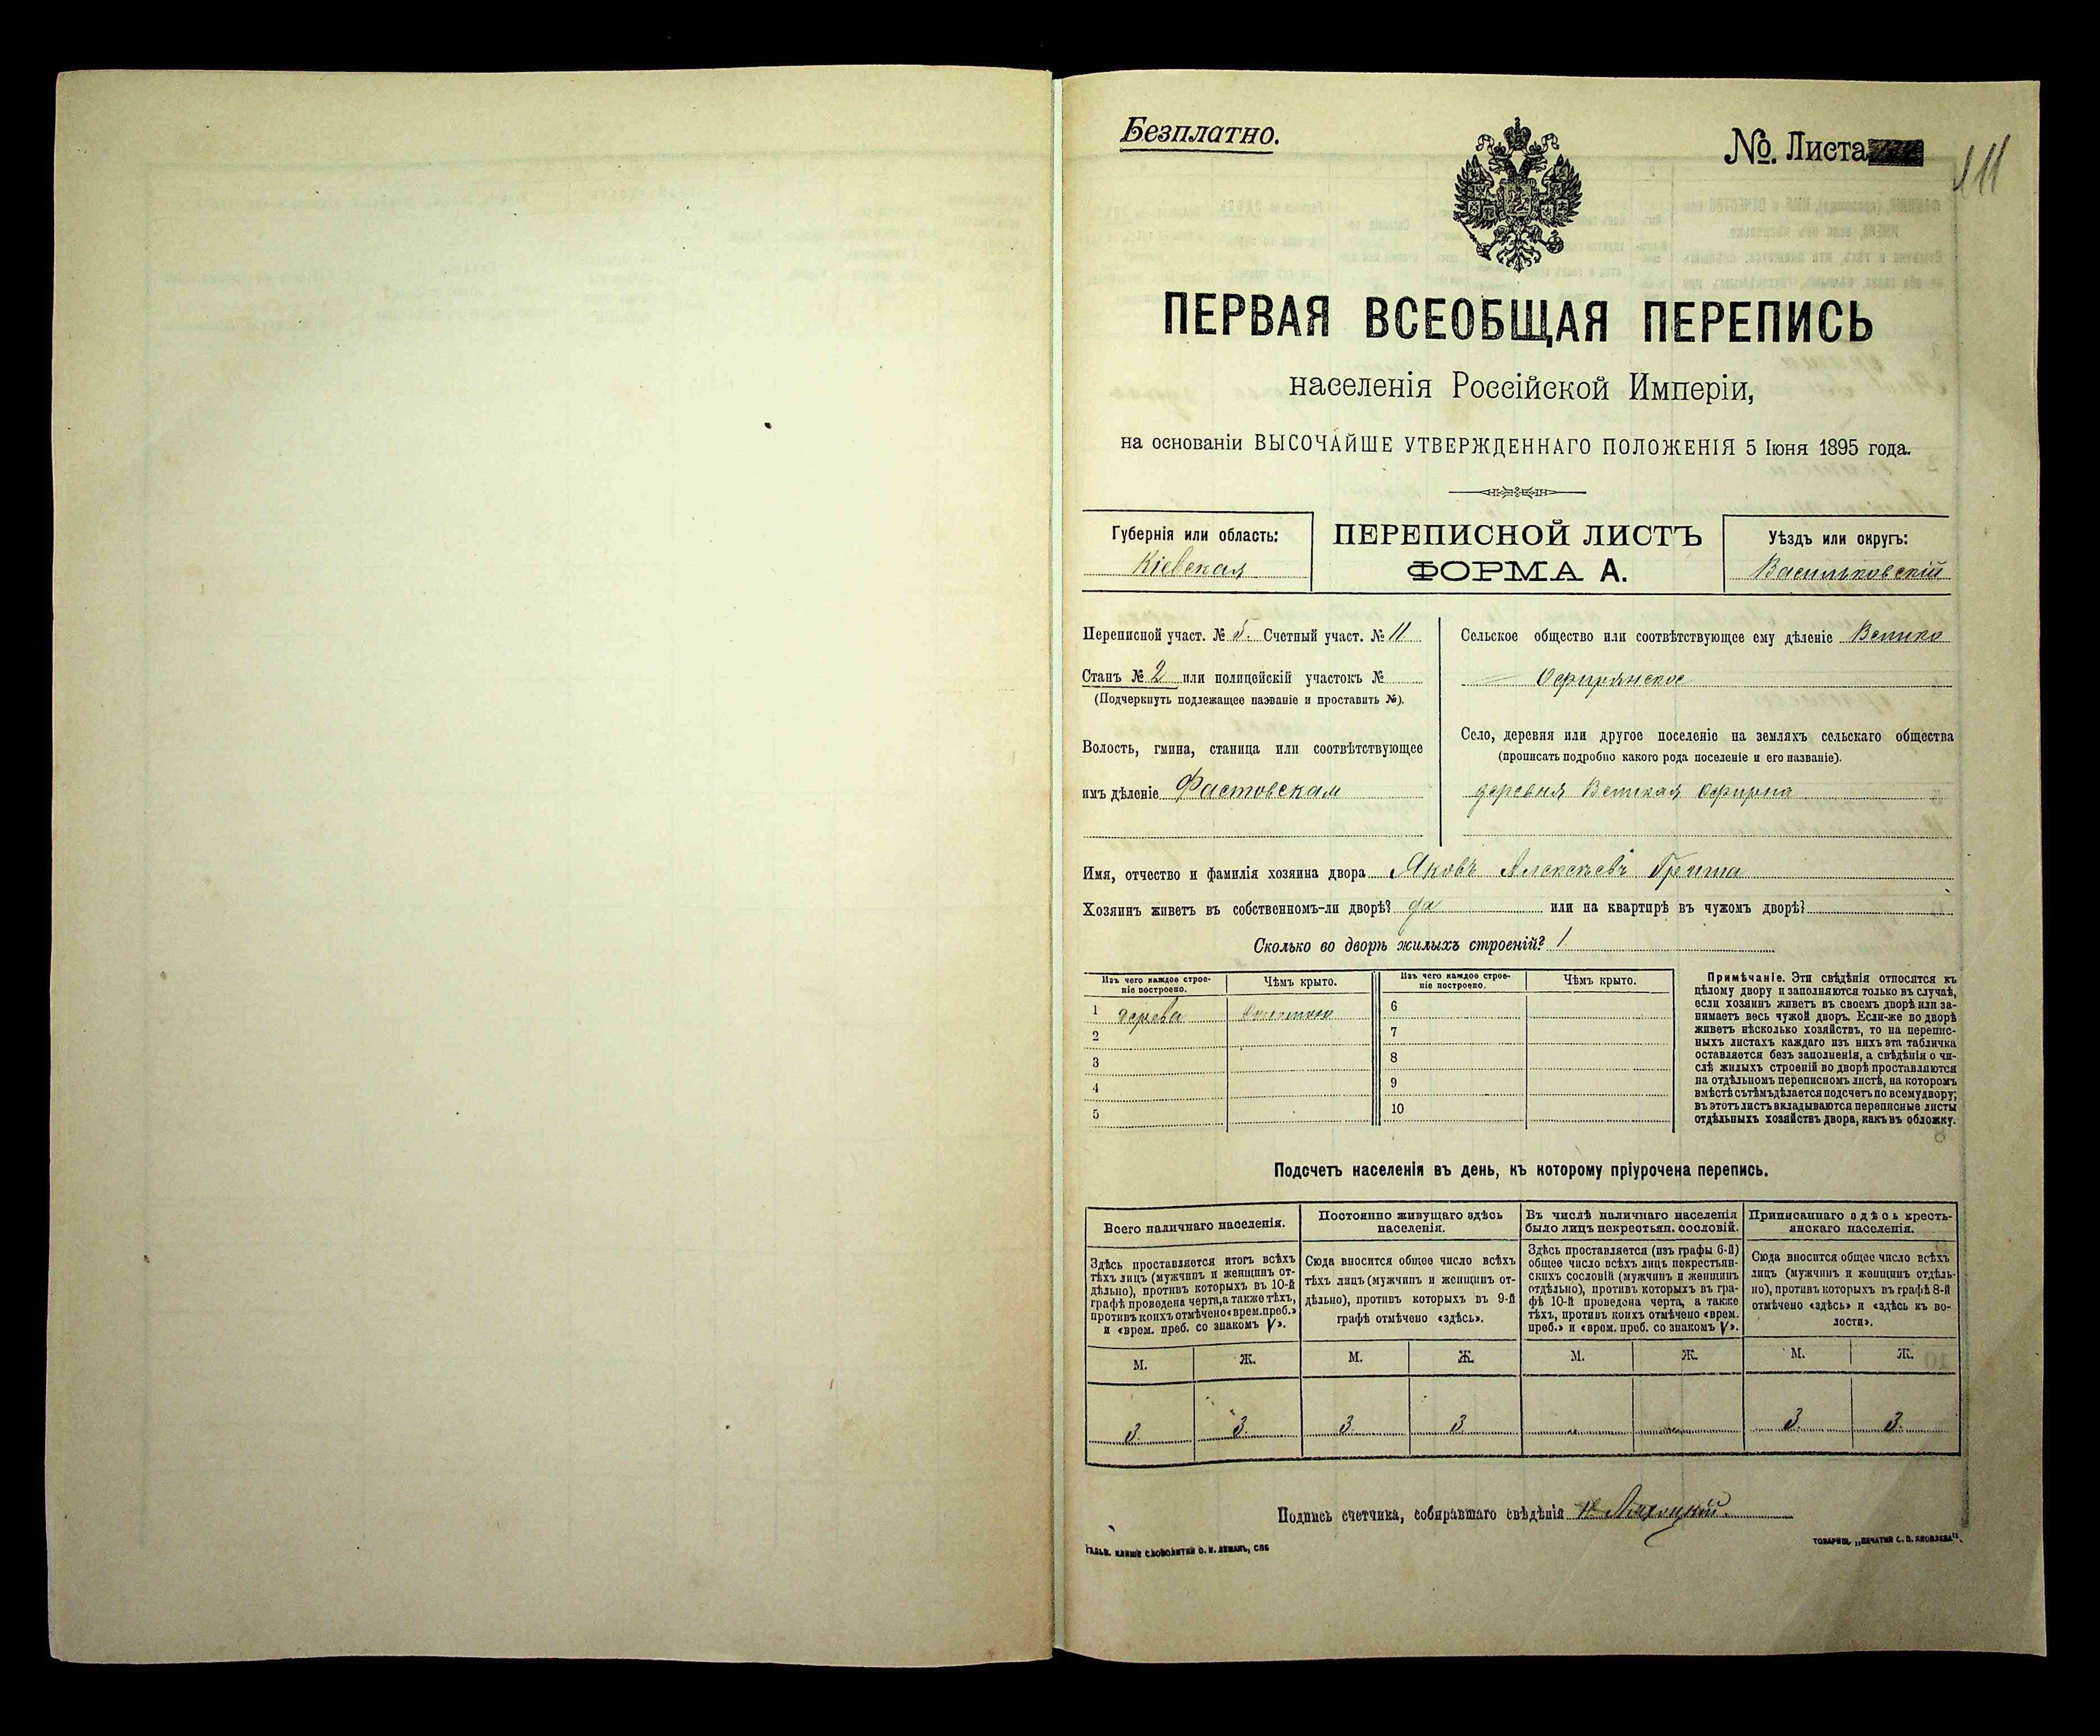 Безплатно.
№. Листа
111
ПЕРВАЯ ВСЕОБЩАЯ ПЕРЕПИСЬ
населенія Россійской Имперіи,
на основаніи ВЫСОЧАЙШЕ УТВЕРЖДЕННАГО ПОЛОЖЕНІЯ 5 Іюня 1895 года.
Губернія или область:
Кіевская
ПЕРЕПИСНОЙ ЛИСТЪ
ФОРМА А.
Уѣздъ или округъ:
Васильковскій
Переписной участ. № 5. Счетный участ. № 11
Станъ № 2 или полицейскій участокъ №
(Подчеркнуть подлежащее названіе и проставить №).
Волость, гмина, станица или соотвѣтствующее
имъ дѣленіе Фастовская
Сельское общество или соотвѣтствующее ему дѣленіе Велико
Офирянское
Село, деревня или другое поселеніе на земляхъ сельскаго общества
(прописать подробно какого рода поселеніе и его названіе).
деревня Великая Офирна
Имя, отчество и фамилія хозяина двора Яковъ Алексѣевъ
Хозяинъ живетъ въ собственномъ-ли дворѣ? да или на квартирѣ въ чужомъ дворѣ?
Сколько во дворѣ жилыхъ строеній? 1
Изъ чего каждое строе-
ніе построено.
Чѣмъ крыто.
Изъ чего каждое строе-
ніе построено.
Чѣмъ крыто.
1 дерева
6
2
7
3
8
4
9
5
10
Примѣчаніе. Эти свѣдѣнія относятся къ
цѣлому двору и заполняются только въ случаѣ,
если хозяинъ живетъ въ своемъ дворѣ или за-
нимаетъ весь чужой дворъ. Если-же во дворѣ
живетъ нѣсколько хозяйствъ, то на перепис-
ныхъ листахъ каждаго изъ нихъ эта табличка
оставляется безъ заполненія, а свѣдѣнія о чи-
слѣ жилыхъ строеній во дворѣ проставляются
на отдѣльномъ переписномъ листѣ, на которомъ
вмѣстѣ съ тѣмъ дѣлается подсчетъ по всему двору;
въ этотъ листъ вкладываются переписные листы
отдѣльныхъ хозяйствъ двора, какъ въ обложку.
Подсчетъ населенія въ день, къ которому пріурочена перепись.
Всего наличнаго населенія.
Постоянно живущаго здѣсь
населенія.
Въ числѣ наличнаго населенія
было лицъ некрестьян. сословій.
Приписаннаго здѣсь кресть-
янскаго населенія.
Здѣсь проставляется итогъ всѣхъ
тѣхъ лицъ (мужчинъ и женщинъ от-
дѣльно), противъ которыхъ въ 10-й
графѣ проведена черта, а также тѣхъ,
противъ коихъ отмѣчено «врем. преб.»
и «врем. преб. со знакомъ V».
Сюда вносится общее число всѣхъ
тѣхъ лицъ (мужчинъ и женщинъ от-
дѣльно), противъ которыхъ въ 9-й
графѣ отмѣчено «здѣсь».
Здѣсь проставляется (изъ графы 6-й)
общее число всѣхъ лицъ некрестьян-
скихъ сословій (мужчинъ и женщинъ
отдѣльно), противъ которыхъ въ гра-
фѣ 10-й проведена черта, а также
тѣхъ, противъ коихъ отмѣчено «врем.
преб.» и «врем. преб. со знакомъ V».
Сюда вносится общее число всѣхъ
лицъ (мужчинъ и женщинъ отдѣль-
но), противъ которыхъ въ графѣ 8-й
отмѣчено «здѣсь» и «здѣсь въ во-
лости».
М. Ж. М. Ж. М. Ж. М. Ж.
3. 3. 3 3 3. 3.
Подпись счетчика, собиравшаго свѣдѣнія